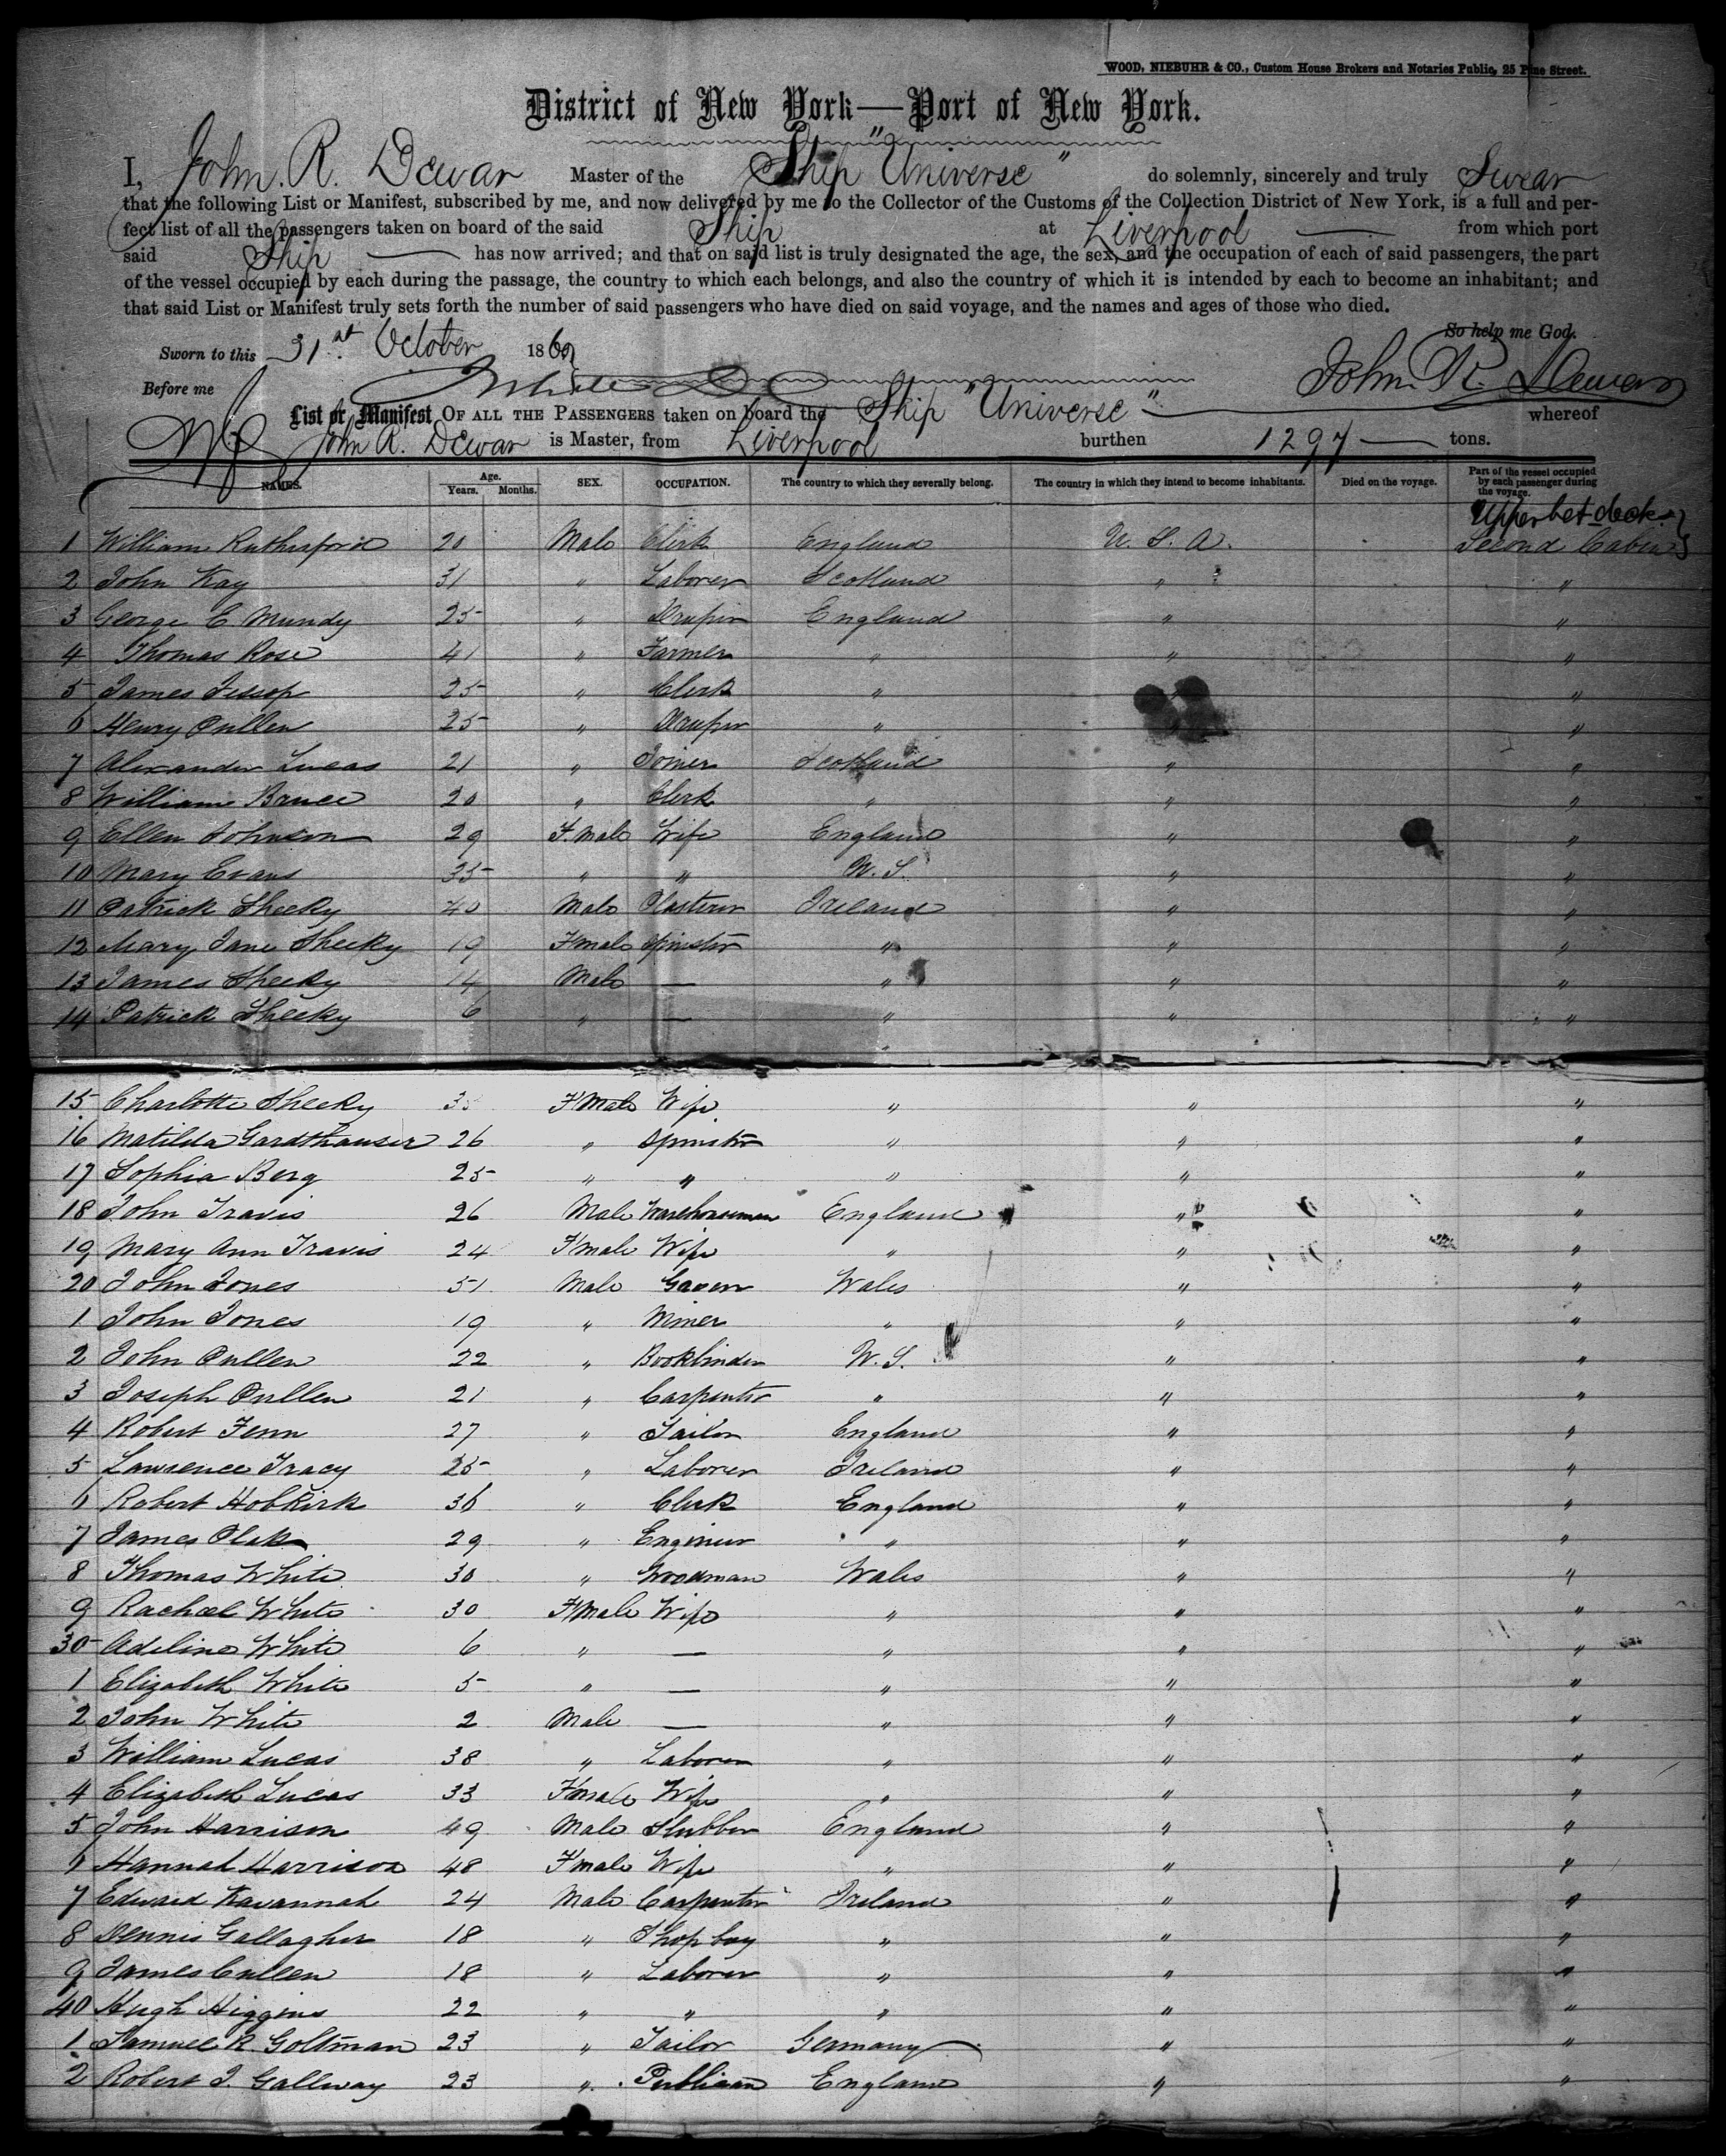 WOOD, NIEBUHR & CO., Custom House Brokers and Notaries Public, 25 Pine Street.
District of New York—Port of New York.
I, John. R. Dewar Master of the Ship "Universe" do solemnly, sincerely and truly Swear
that the following List or Manifest, subscribed by me, and now delivered by me to the Collector of the Customs of the Collection District of New York, is a full and per-
fect list of all the passengers taken on board of the said Ship at Liverpool from which port
said Ship has now arrived; and that on said list is truly designated the age, the sex, and the occupation of each of said passengers, the part
of the vessel occupied by each during the passage, the country to which each belongs, and also the country of which it is intended by each to become an inhabitant; and
that said List or Manifest truly sets forth the number of said passengers who have died on said voyage, and the names and ages of those who died.
So help me God.
Sworn to this 31st October 186
Before me John R. Dewar
List or Manifest OF ALL THE PASSENGERS taken on board the Ship "Universe" whereof
John R. Dewar is Master, from Liverpool burthen 1297 tons.
NAMES. Age. Years. Months. SEX. OCCUPATION. The country to which they severally belong. The country in which they intend to become inhabitants. Died on the voyage. Part of the vessel occupied by each passenger during the voyage.
Upper bet deck
1 William Rutherford 20 Male Clerk England U. S. A. Second Cabin
2 John Kay 31 " Laborer Scotland " "
3 George E Mundy 25 " Draper England " "
4 Thomas Rose 41 " Farmer " " "
5 James Jessop 25 " Clerk " "
6 Henry Pullen 25 " Draper " "
7 Alexander Lucas 21 " Joiner Scotland " "
8 William Bruce 20 " Clerk " " "
9 Ellen Johnson 29 F.male Wife England " "
10 Mary Evans 35 " " U. S. " "
11 Patrick Sheeky 40 Male Plasterer Ireland " "
12 Mary Jane Sheeky 19 Fmale Spinster " " "
13 James Sheeky 14 Male — " " "
14 Patrick Sheeky 6 " — " " "
15 Charlotte Sheeky Fmale Wife " " "
16 Matilda Gardthauser 26 " Spinster " " "
17 Sophia Berg 25 " " " " "
18 John Travis 26 Male Warehouseman England " "
19 Mary Ann Travis 24 Fmale Wife " " "
20 John Jones 51 Male Wales " "
1 John Jones 19 " Miner " " "
2 John Pullen 22 " Bookbinder U. S. " "
3 Joseph Pullen 21 " Carpenter " " "
4 Robert Fenn 27 " Tailor England " "
5 Lawrence Tracy 25 " Laborer Ireland " "
6 Robert Hobkirk 36 " Clerk England " "
7 James 29 " Engineer " " "
8 Thomas White 30 " Woodman Wales " "
9 Rachael White 30 Fmale Wife " " "
30 Adeline White 6 " — " " "
1 Elizabeth White 5 " — " " "
2 John White 2 Male — " " "
3 William Lucas 38 " Laborer " " "
4 Elizabeth Lucas 33 Fmale Wife " " "
5 John Harrison 49 Male Slubber England " "
6 Hannah Harrison 48 Fmale Wife " " "
7 Edward Kavannah 24 Male Carpenter Ireland " "
8 Dennis Gallagher 18 " Shop boy " " "
9 James Cullen 18 " Laborer " " "
40 Hugh Higgins 22 " " " " "
1 Samuel R. Goltman 23 " Tailor Germany " "
2 Robert J. Gallway 23 " Publican England " "